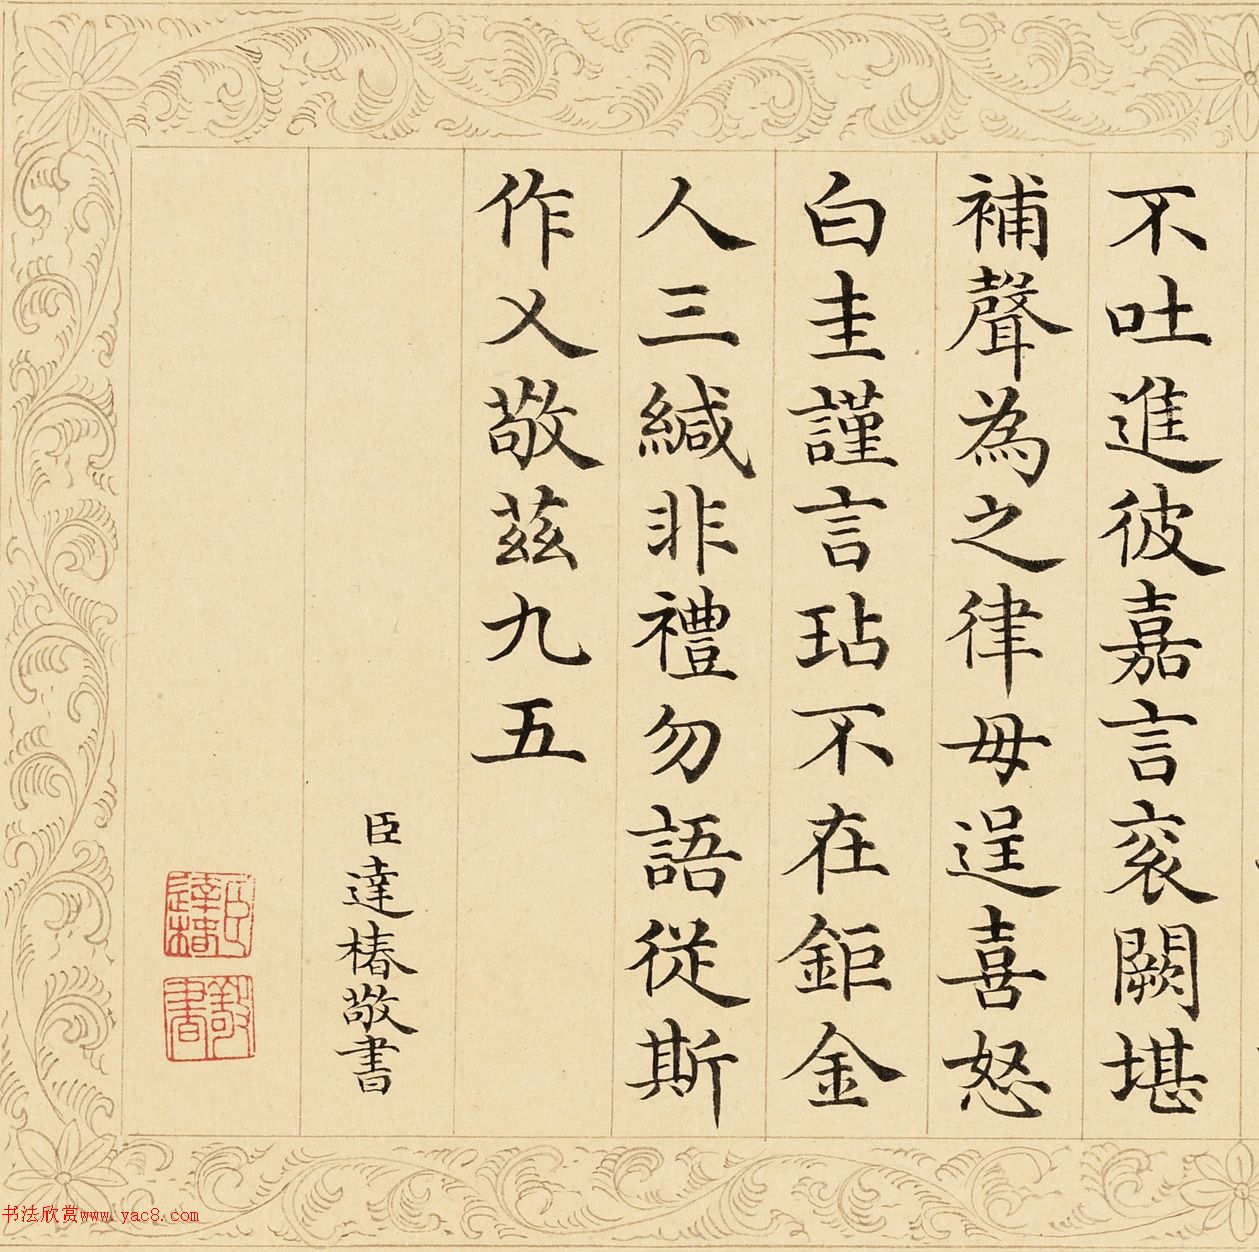 不吐進彼嘉言衮闕堪
補聲為之律毋逞喜怒
白圭謹言玷不在鉅金
人三緘非禮勿語從斯
作乂敬茲九五
臣達椿敬書
臣達椿
敬書
书法欣赏www.yac8.com